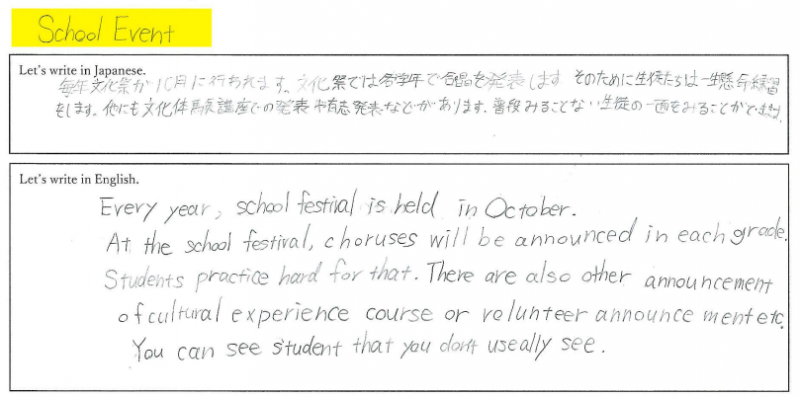 School Event
Let's write in Japanese.
毎年文化祭が10月に行われます。文化祭では各学年で合唱を発表します そのために生徒たちは一生懸命練習
をします。他にも文化体験講座での発表や有志発表などがあります。普段みることない生徒の一面をみることができます。
Let's write in English.
Every year, school festival is held in October.
At the school festival, choruses will be announced in each grade.
Students practice hard for that. There are also other announcement
of cultural experience course or volunteer announcement etc.
You can see student that you don't useally see.